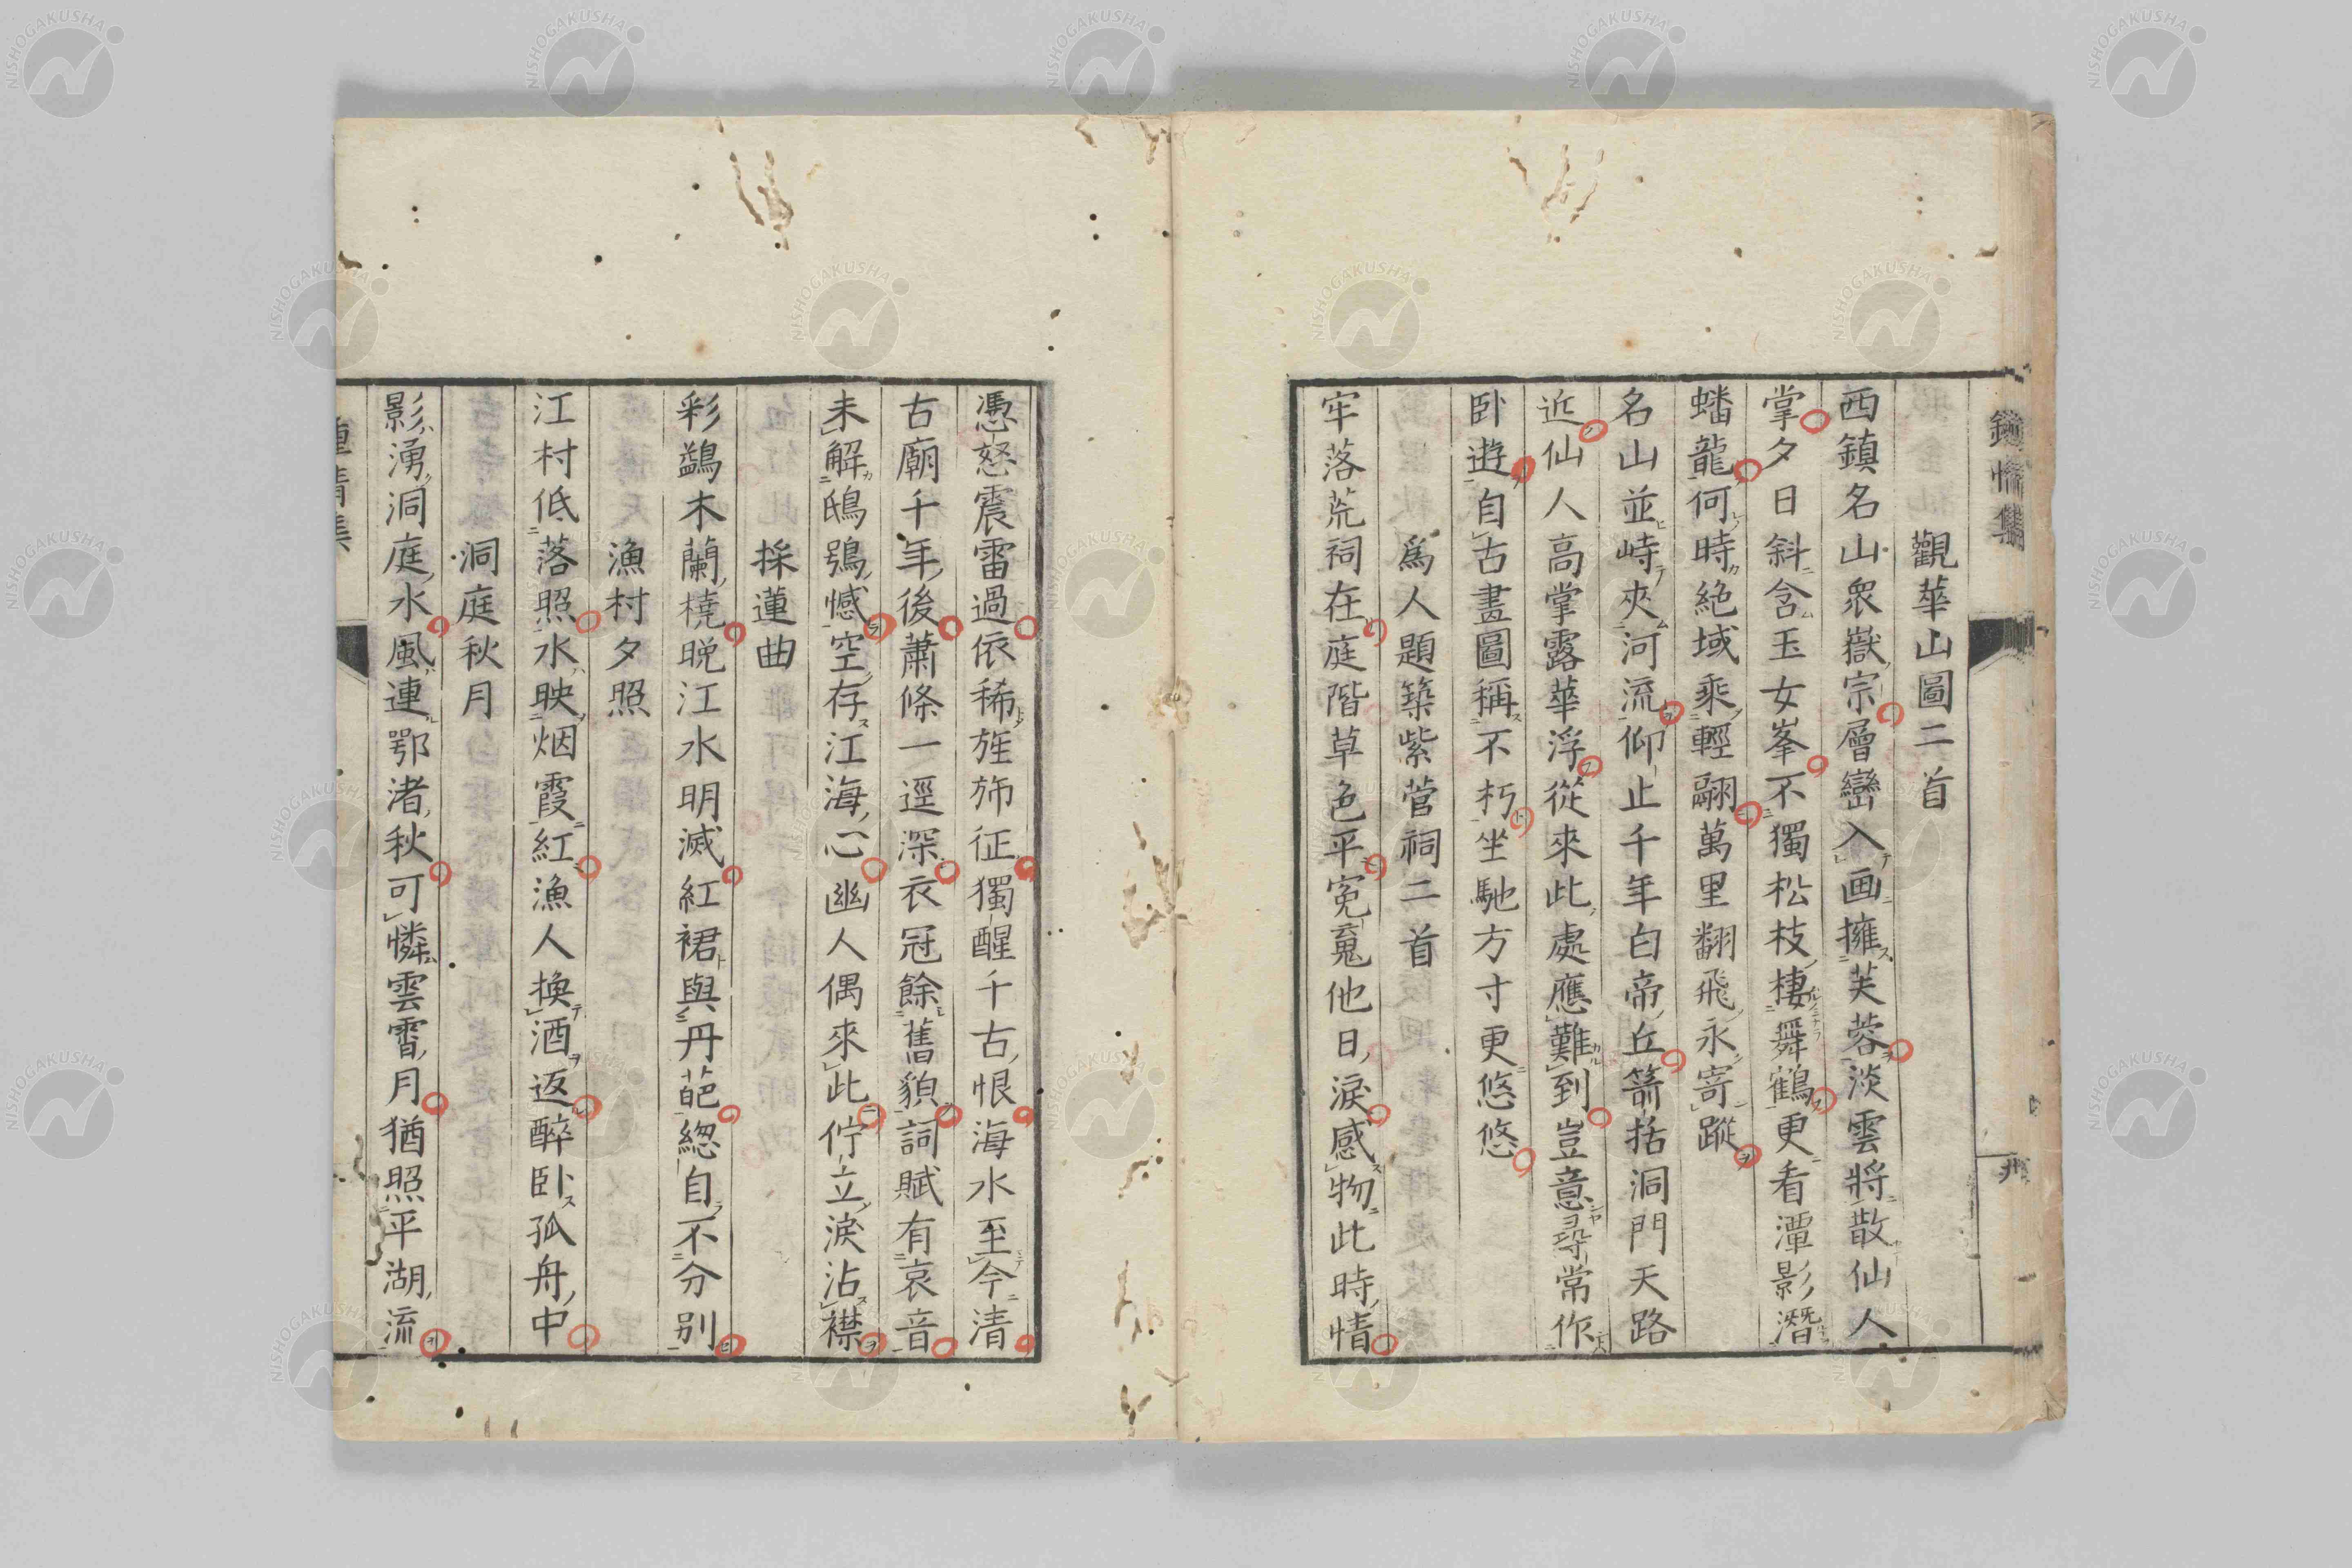 鍾情集
觀華山圖二首
西鎮名山衆嶽宗層巒入画擁芙蓉淡雲將散仙人
掌夕日斜含玉女峯不獨松枝棲舞鶴更看潭影潛
蟠龍何時絶域乘輕翮萬里翻飛永寄蹤
名山並峙夾河流仰止千年白帝丘箭括洞門天路
近仙人高掌露華浮從來此處應難到豈意尋常作
臥遊自古畫圖稱不朽坐馳方寸更悠悠
爲人題築紫菅祠二首
牢落荒祠在庭階草色平冤䰟他日淚感物此時情
憑怒震雷過依稀旌斾征獨醒千古恨海水至今清
古廟千年後蕭條一逕深衣冠餘舊貌詞賦有哀音
未解鴟鴞憾空存江海心幽人偶來此佇立淚沾襟
採蓮曲
彩鷁木蘭橈晩江水明滅紅裙與丹葩緫自不分別
漁村夕照
江村低落照水映烟霞紅漁人換酒返醉臥孤舟中
洞庭秋月
影湧洞庭水風連鄂渚秋可憐雲霄月猶照平湖流
鍾情集
NISHOGAKUSHA